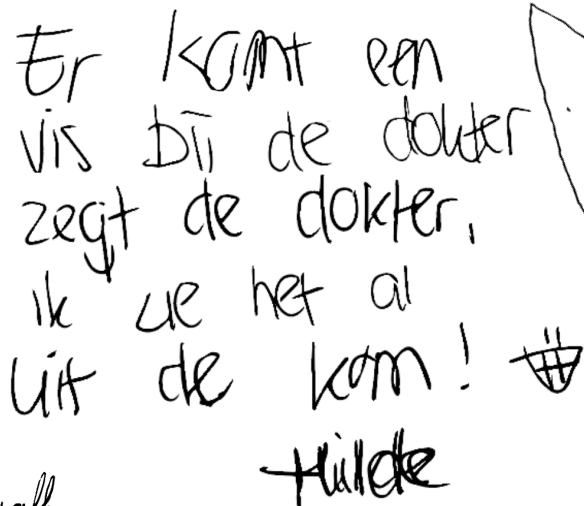 Er komt een
vis bij de dokter
zegt de dokter,
ik zie het al
uit de kom!